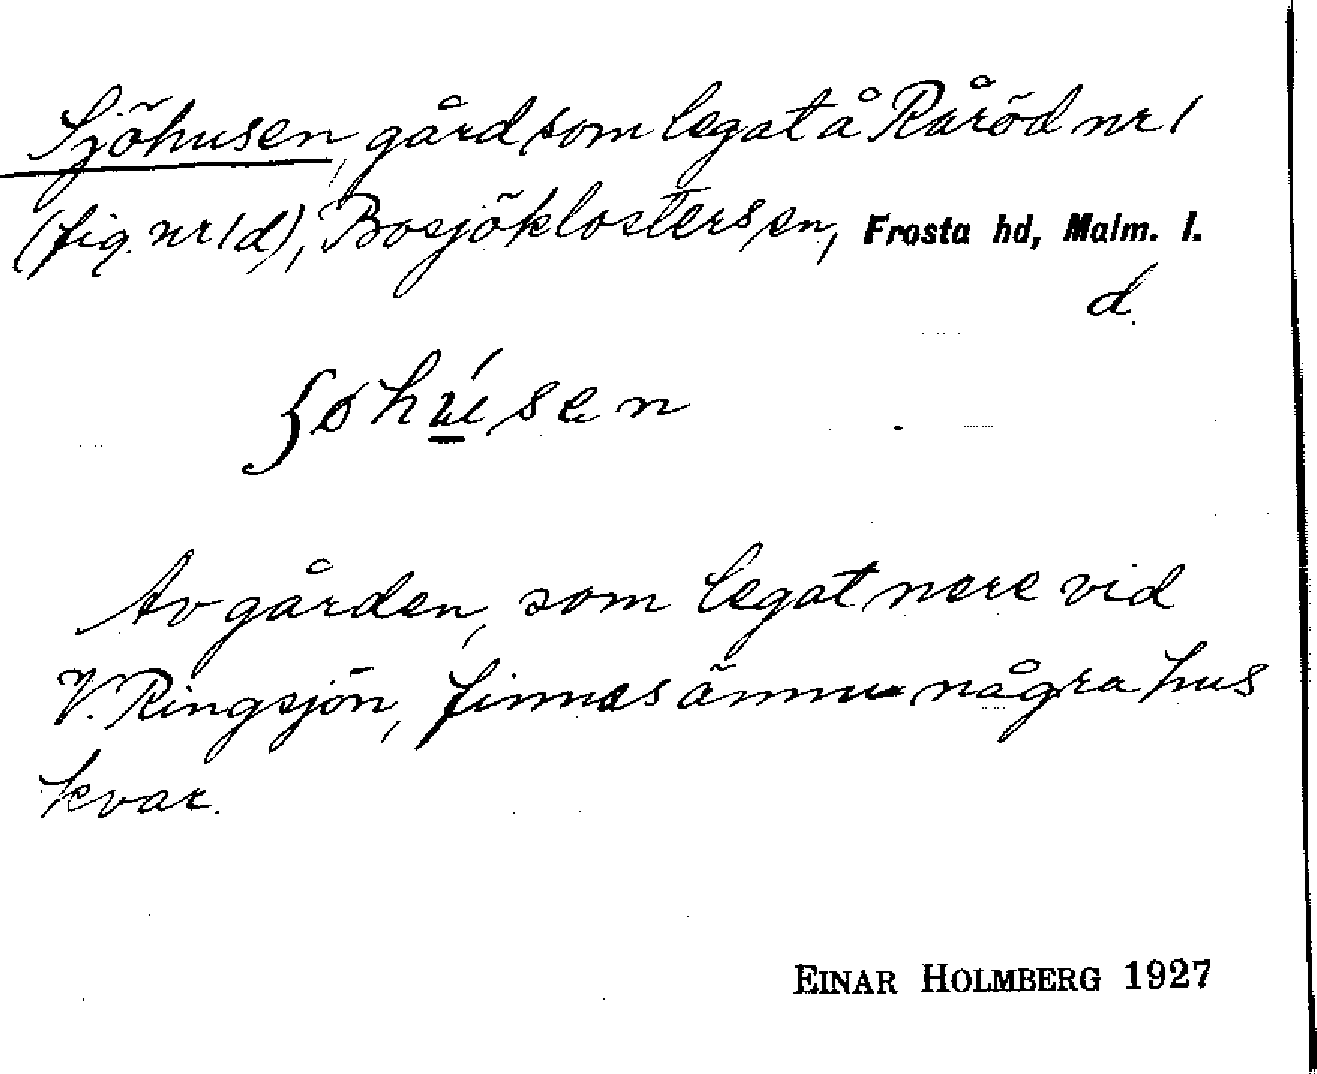 Sjöhusen, gård som legat å Råröd nr 1
(fig. nr 1 d), Bosjöklosters sn, Frosta hd, Malm. l.
d.
Av gården, som legat nere vid
V. Ringsjön, finnes ännu några hus
kvar.
EINAR HOLMBERG 1927